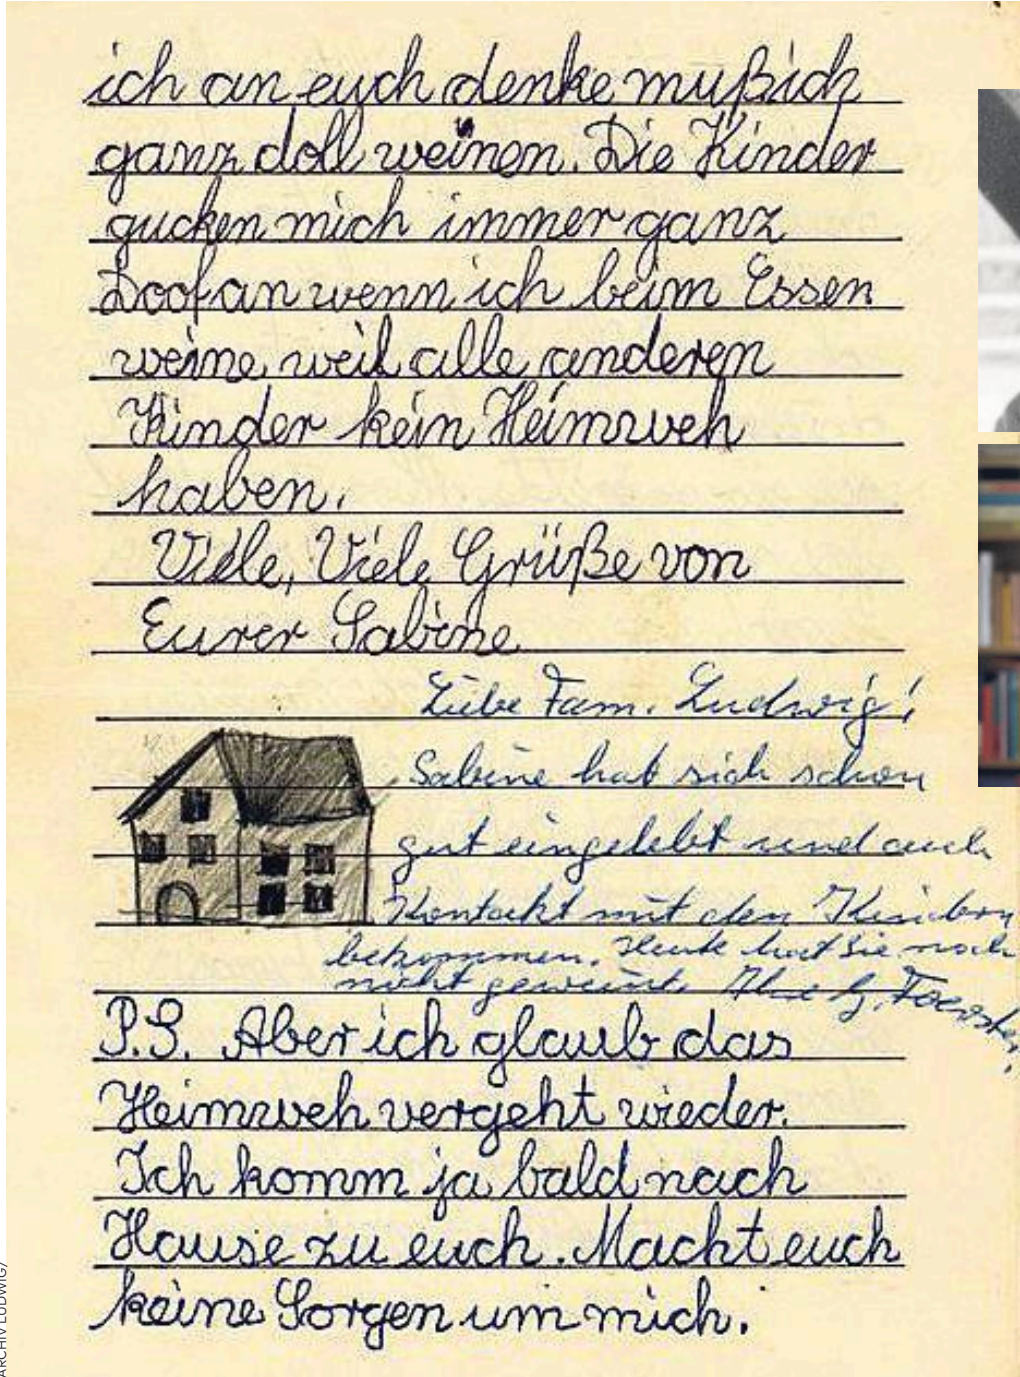 ich an euch denke muß ich
ganz doll weinen. Die Kinder
gucken mich immer ganz
Doof an wenn ich beim Essen
weine, weil alle anderen
Kinder kein Heimweh
haben.
Viele, Viele Grüße von
Eurer Sabine
Liebe Fam. Ludwig!
Sabine hat sich schon
gut eingelebt und auch
Kontakt mit den Kindern
bekommen. Heute hat sie noch
nicht geweint. Ihre G. Foerster.
P.S. Aber ich glaub das
Heimweh vergeht wieder.
Ich komm ja bald nach
Hause zu euch. Macht euch
keine Sorgen um mich.
ARCHIV LUDWIG/